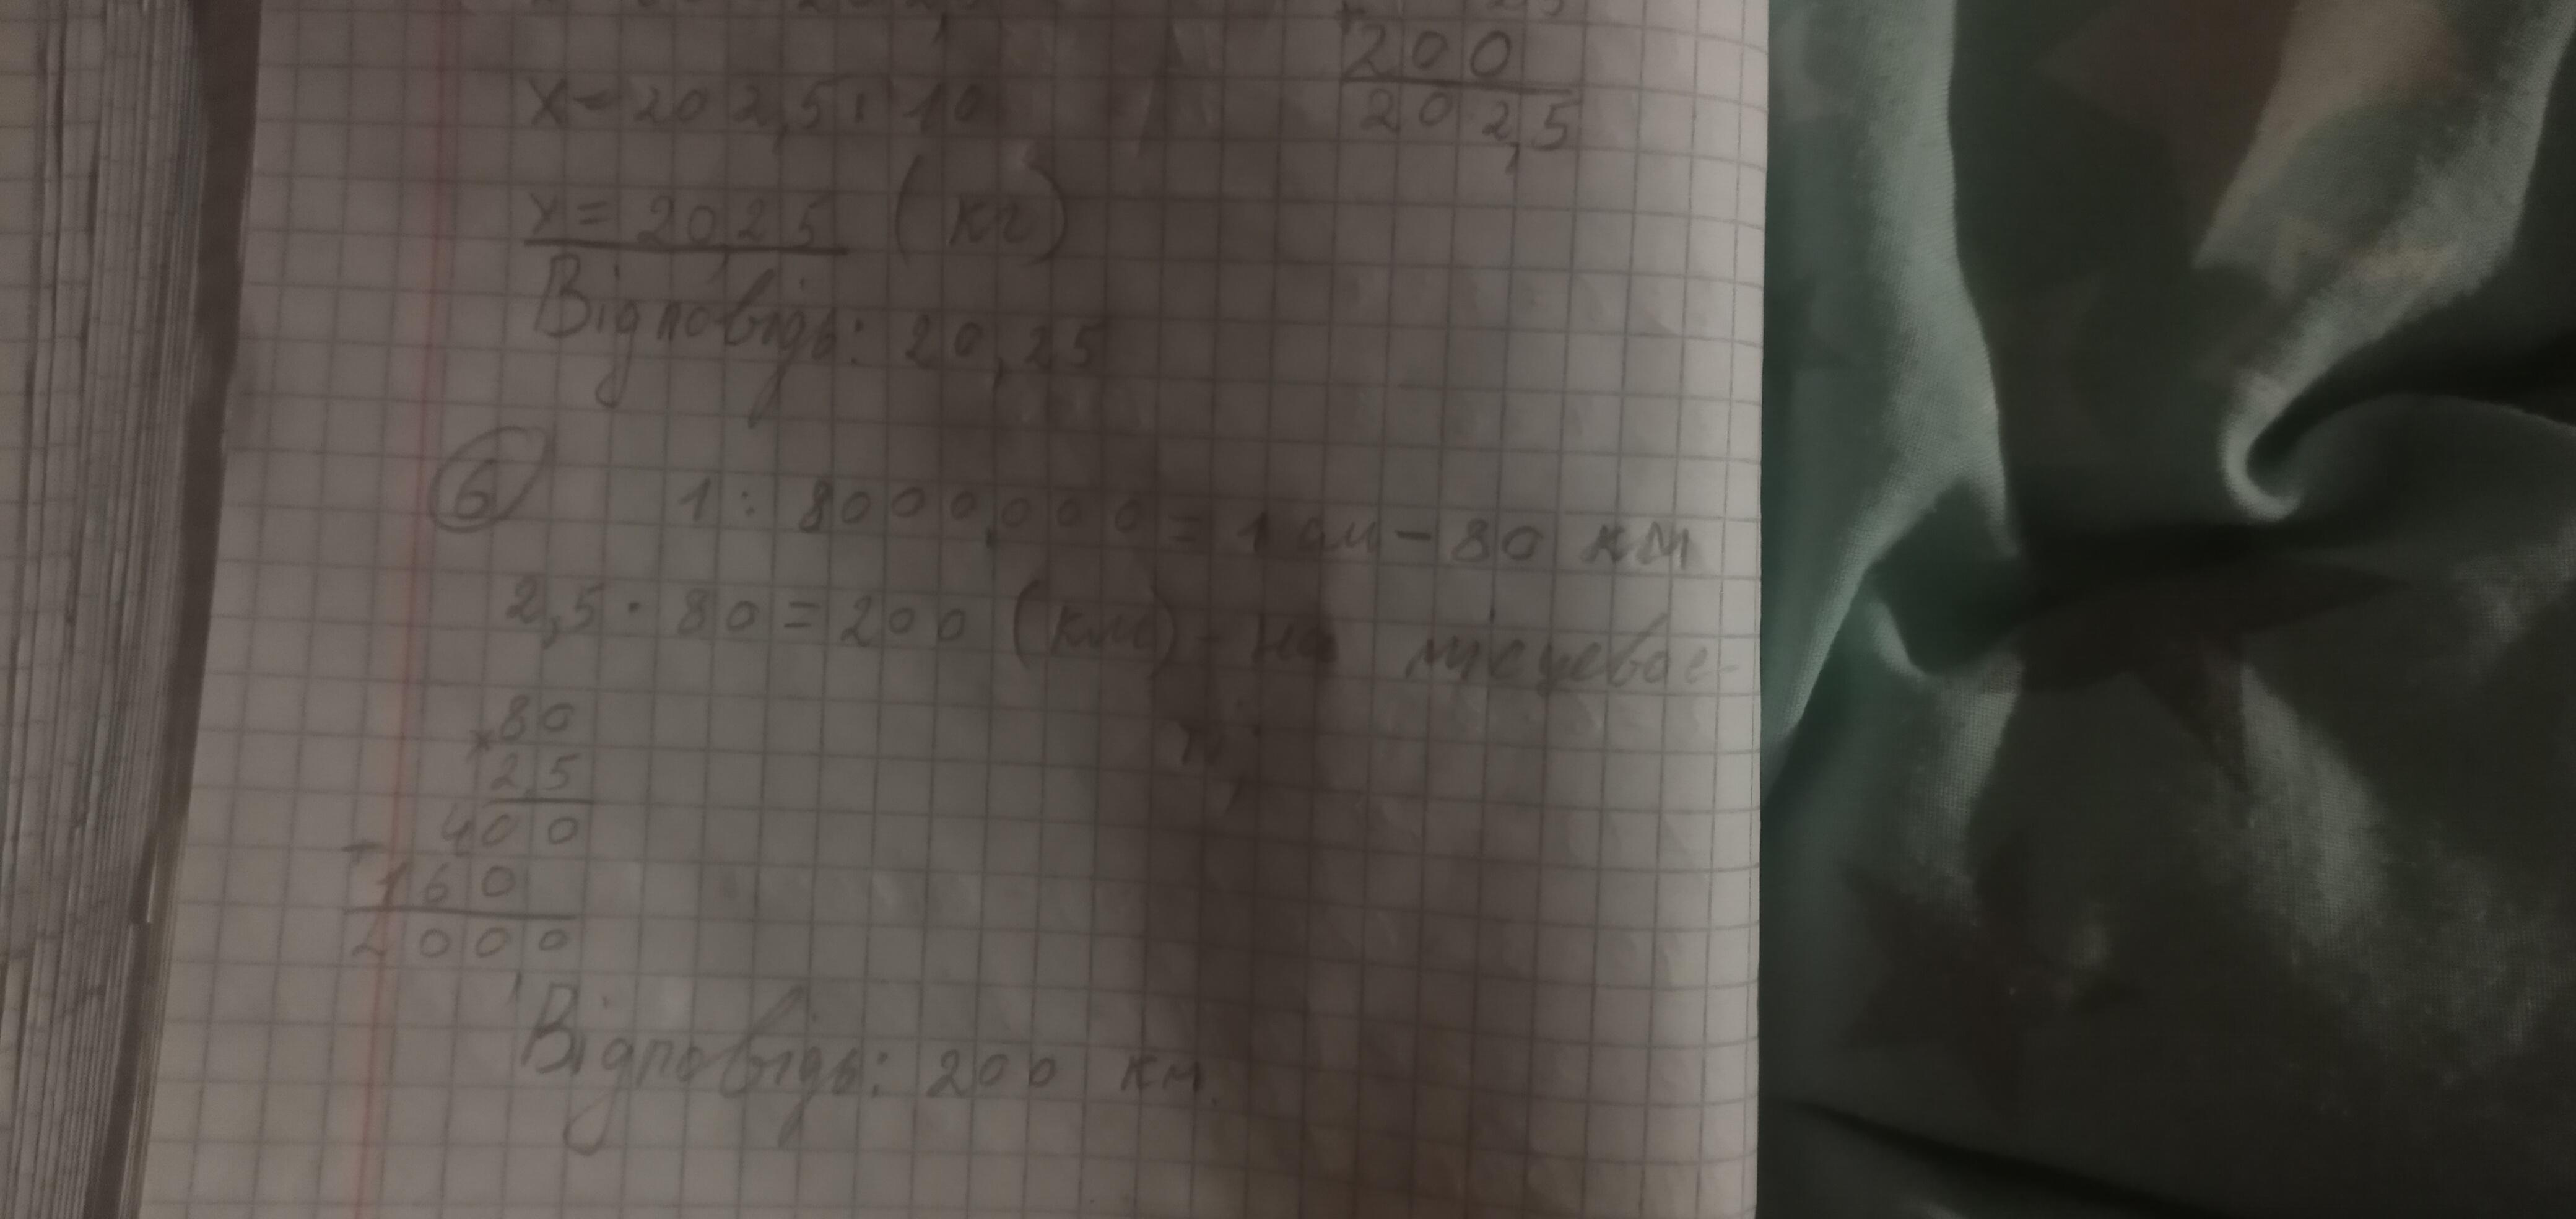 200
x = 202,5 : 10
202,5
x = 20,25 (кг)
Відповідь: 20,25
6 1 : 8000,000 = 1 см - 80 км
2,5 · 80 = 200 (км) - на місцевос-
ті;
80
×
25
400
+
160
2000
Відповідь: 200 км.